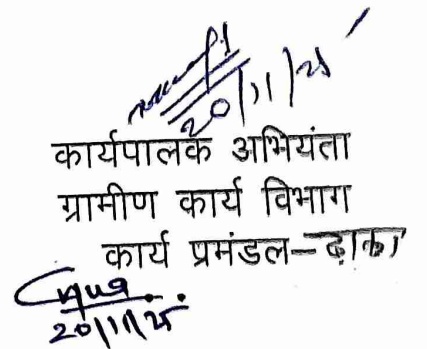 20/11/25
कार्यपालक अभियंता
ग्रामीण कार्य विभाग
कार्य प्रमंडल-ढाका
20/11/25